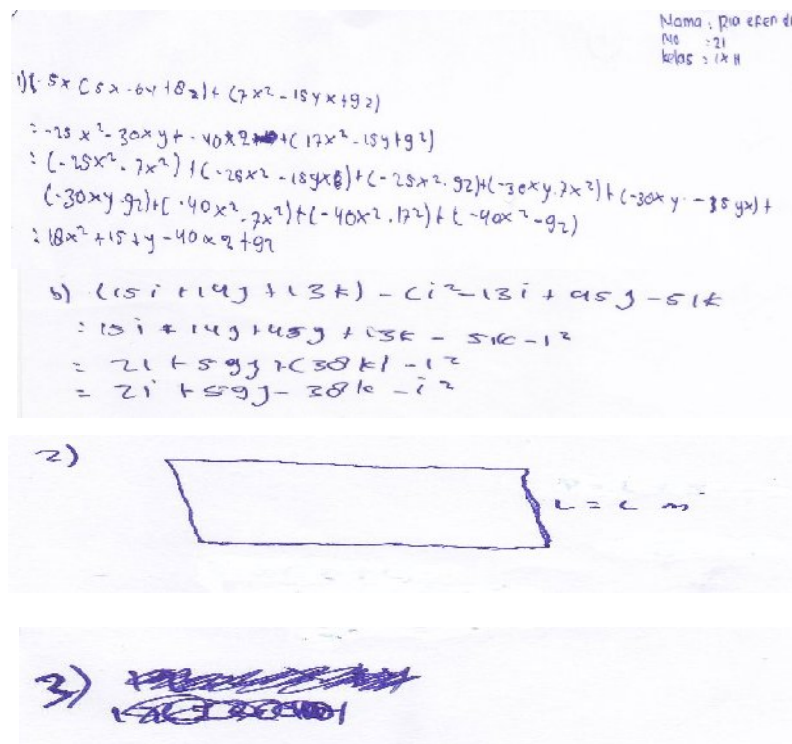 Nama : Rio efendi
No : 21
kelas : IX H
1)(-5x(5x-6y+8z)+(7x²-15yx+9z)
=-25x²-30xy+-40xz+(17x²-15y+9z)
=(-25x².7x²)+(-25x²-15yx)+(-25x².9z)+(-30xy.7x²)+(-30xy.-35yx)+
(-30xy.9z)+(-40x².7x²)+(-40x².17²)+(-40x²-9z)
=18x²+15+y-40xz+9z
b) (15i+14j+13k)-(i²-13i+45j-51k
=15i+14j+45j+13k-51k-i²
=2i+59j+(38k)-i²
=2i+59j-38k-i²
2)
L = L m
3)